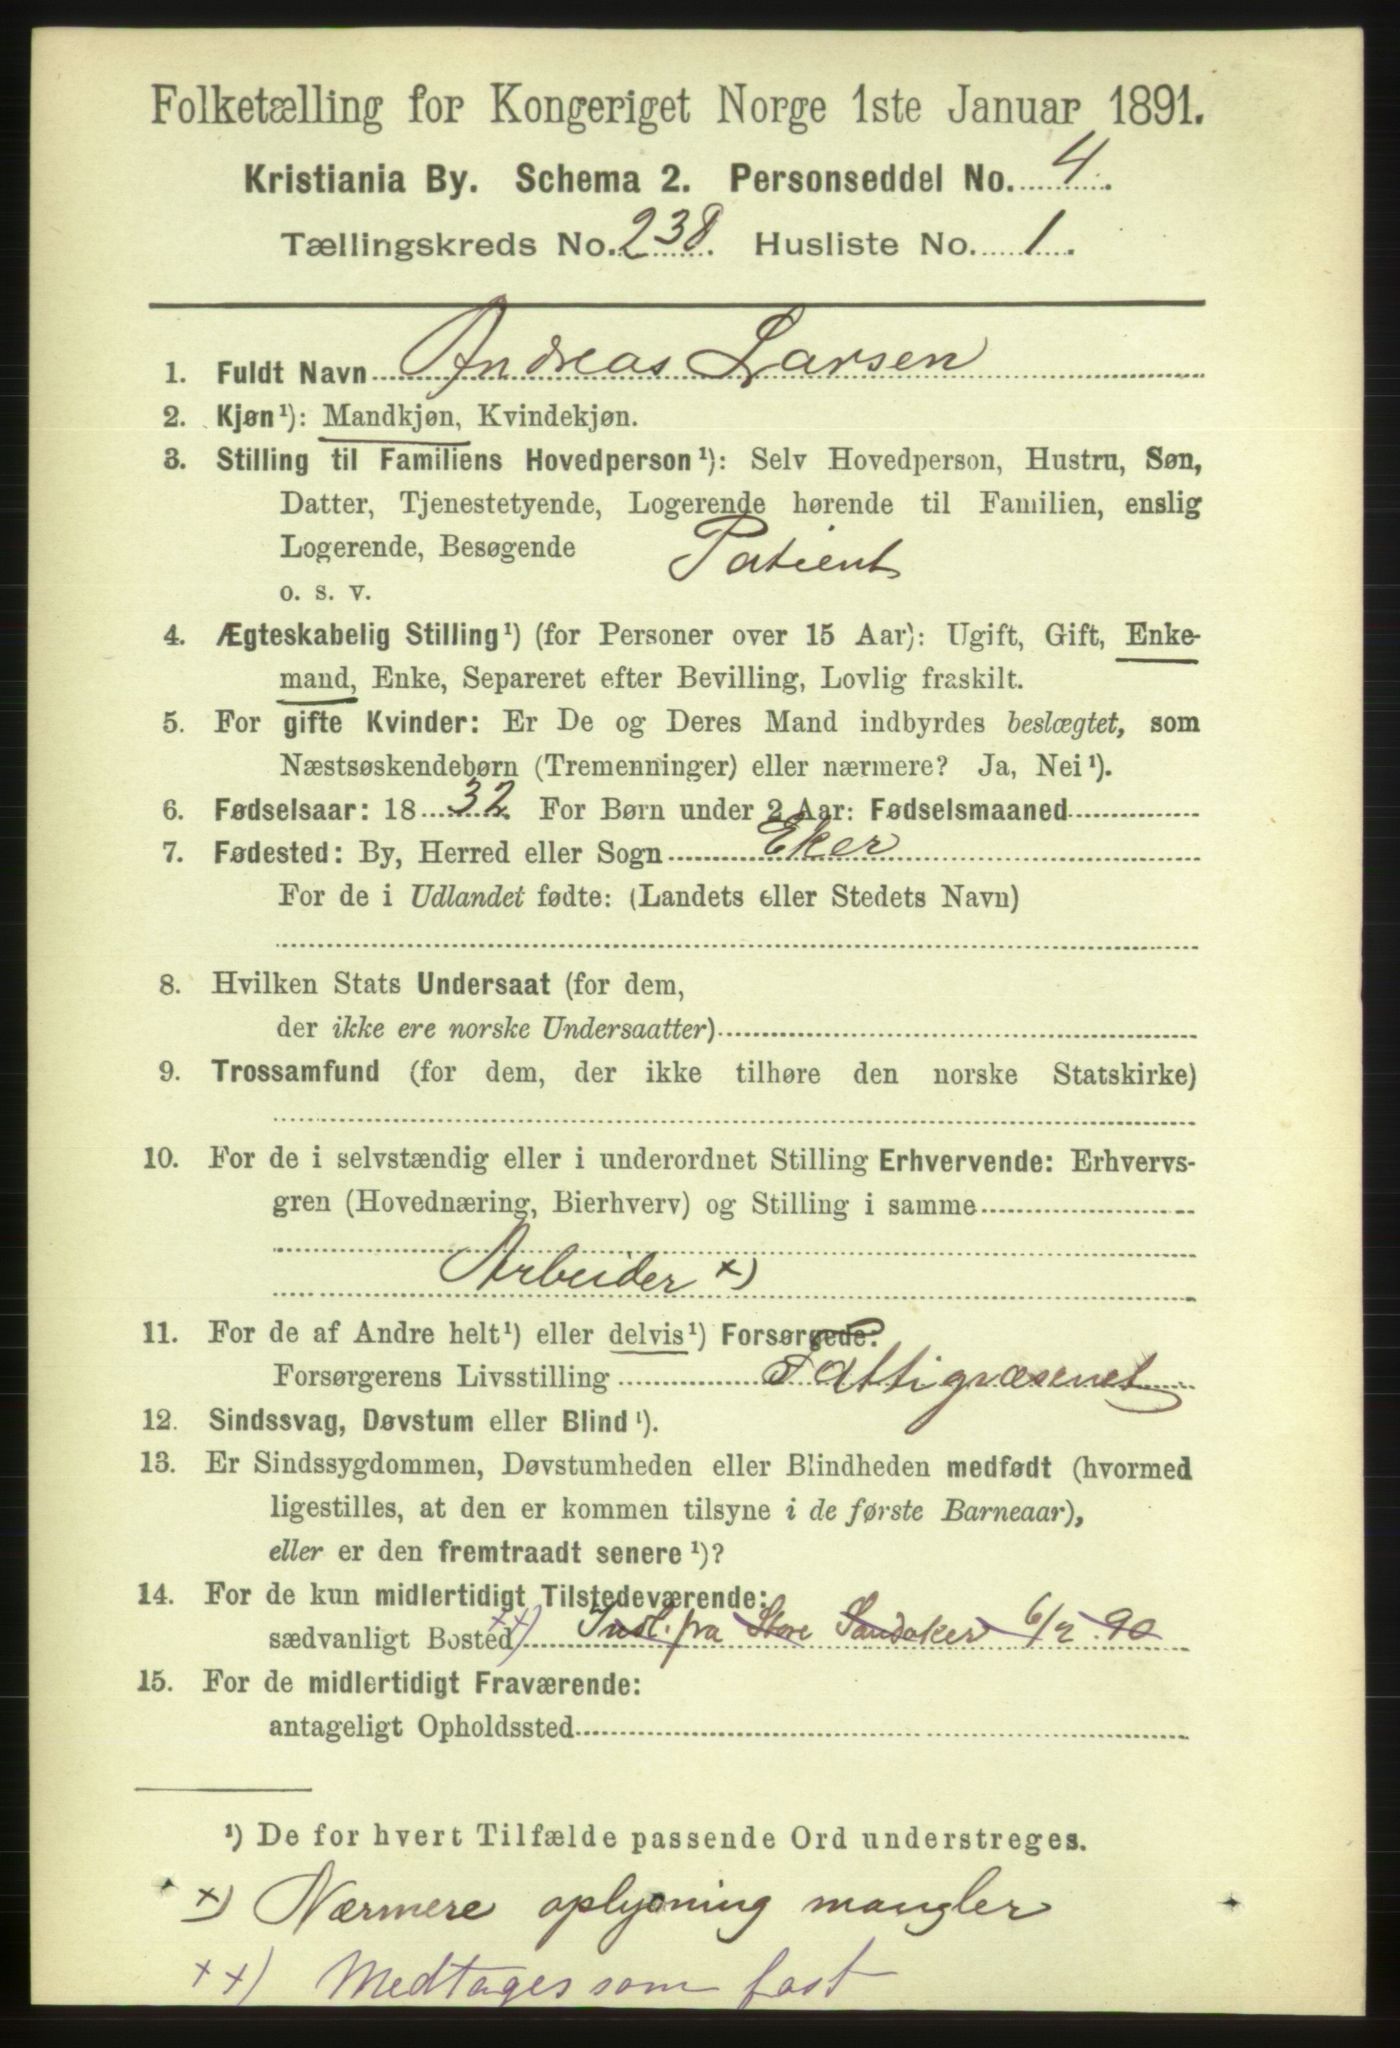 Folketælling for Kongeriget Norge 1ste Januar 1891.
Kristiania By. Schema 2. Personseddel No. 4.
Tællingskreds No. 238. Husliste No. 1.
1. Fuldt Navn Andreas Larsen
2. Kjøn¹): Mandkjøn, Kvindekjøn.
3. Stilling til Familiens Hovedperson¹): Selv Hovedperson, Hustru, Søn,
Datter, Tjenestetyende, Logerende hørende til Familien, enslig
Logerende, Besøgende Patient
o. s. v.
4. Ægteskabelig Stilling¹) (for Personer over 15 Aar): Ugift, Gift, Enke-
mand, Enke, Separeret efter Bevilling, Lovlig fraskilt.
5. For gifte Kvinder: Er De og Deres Mand indbyrdes beslægtet, som
Næstsøskendebørn (Tremenninger) eller nærmere? Ja, Nei¹).
6. Fødselsaar: 1832. For Børn under 2 Aar: Fødselsmaaned
7. Fødested: By, Herred eller Sogn Eker
For de i Udlandet fødte: (Landets eller Stedets Navn)
8. Hvilken Stats Undersaat (for dem,
der ikke ere norske Undersaatter)
9. Trossamfund (for dem, der ikke tilhøre den norske Statskirke)
10. For de i selvstændig eller i underordnet Stilling Erhvervende: Erhvervs-
gren (Hovednæring, Bierhverv) og Stilling i samme
Arbeider x)
11. For de af Andre helt¹) eller delvis¹) Forsørgede:
Forsørgerens Livsstilling Fattigvæsenet
12. Sindssvag, Døvstum eller Blind¹).
13. Er Sindssygdommen, Døvstumheden eller Blindheden medfødt (hvormed
ligestilles, at den er kommen tilsyne i de første Barneaar),
eller er den fremtraadt senere¹)?
14. For de kun midlertidigt Tilstedeværende:
sædvanligt Bosted xx) Indl. fra Store Sandaker 6/2 90
15. For de midlertidigt Fraværende:
antageligt Opholdssted
¹) De for hvert Tilfælde passende Ord understreges.
x) Nærmere oplysning mangler
xx) Medtages som fast